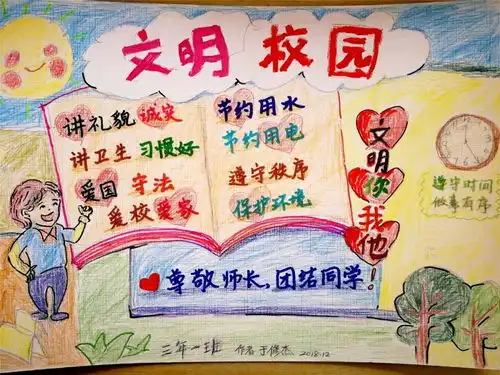 文明 校园
讲礼貌 诚实
讲卫生 习惯好
爱国 守法
爱校 爱家
节约用水
节约用电
遵守秩序
保护环境
文明你我他!
遵守时间
做事有序
尊敬师长,团结同学!
三年一班 作者 王修杰 2018.12